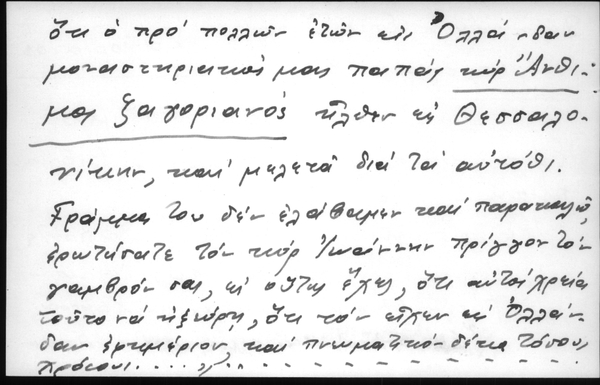 ὅτι ὁ πρό πολλῶν ἐτῶν εἰς Ὀλλάνδαν
μοναστηριακός μας παπάς κύρ Ἄνθι-
μος Ζαγοριανός ἦλθεν εἰς Θεσσαλο-
νίκην, καί μελετᾶ διά τά αὐτόθι.
Γράμμα του δέν ἐλάβαμεν καί παρακαλῶ,
ἐρωτήσατε τόν κύρ Ἰωάννην Πρίγγον τόν
γαμβρόν σας, εἰ οὕτως ἔχει, ὅτι αὐτοῦ χρεία
τοῦτο νά ἠξεύρῃ, ὅτι τόν εἶχεν εἰς Ὀλλάν-
δαν ἐφημέριον καί πνευματικόν δέκα τόσους
χρόνους.....